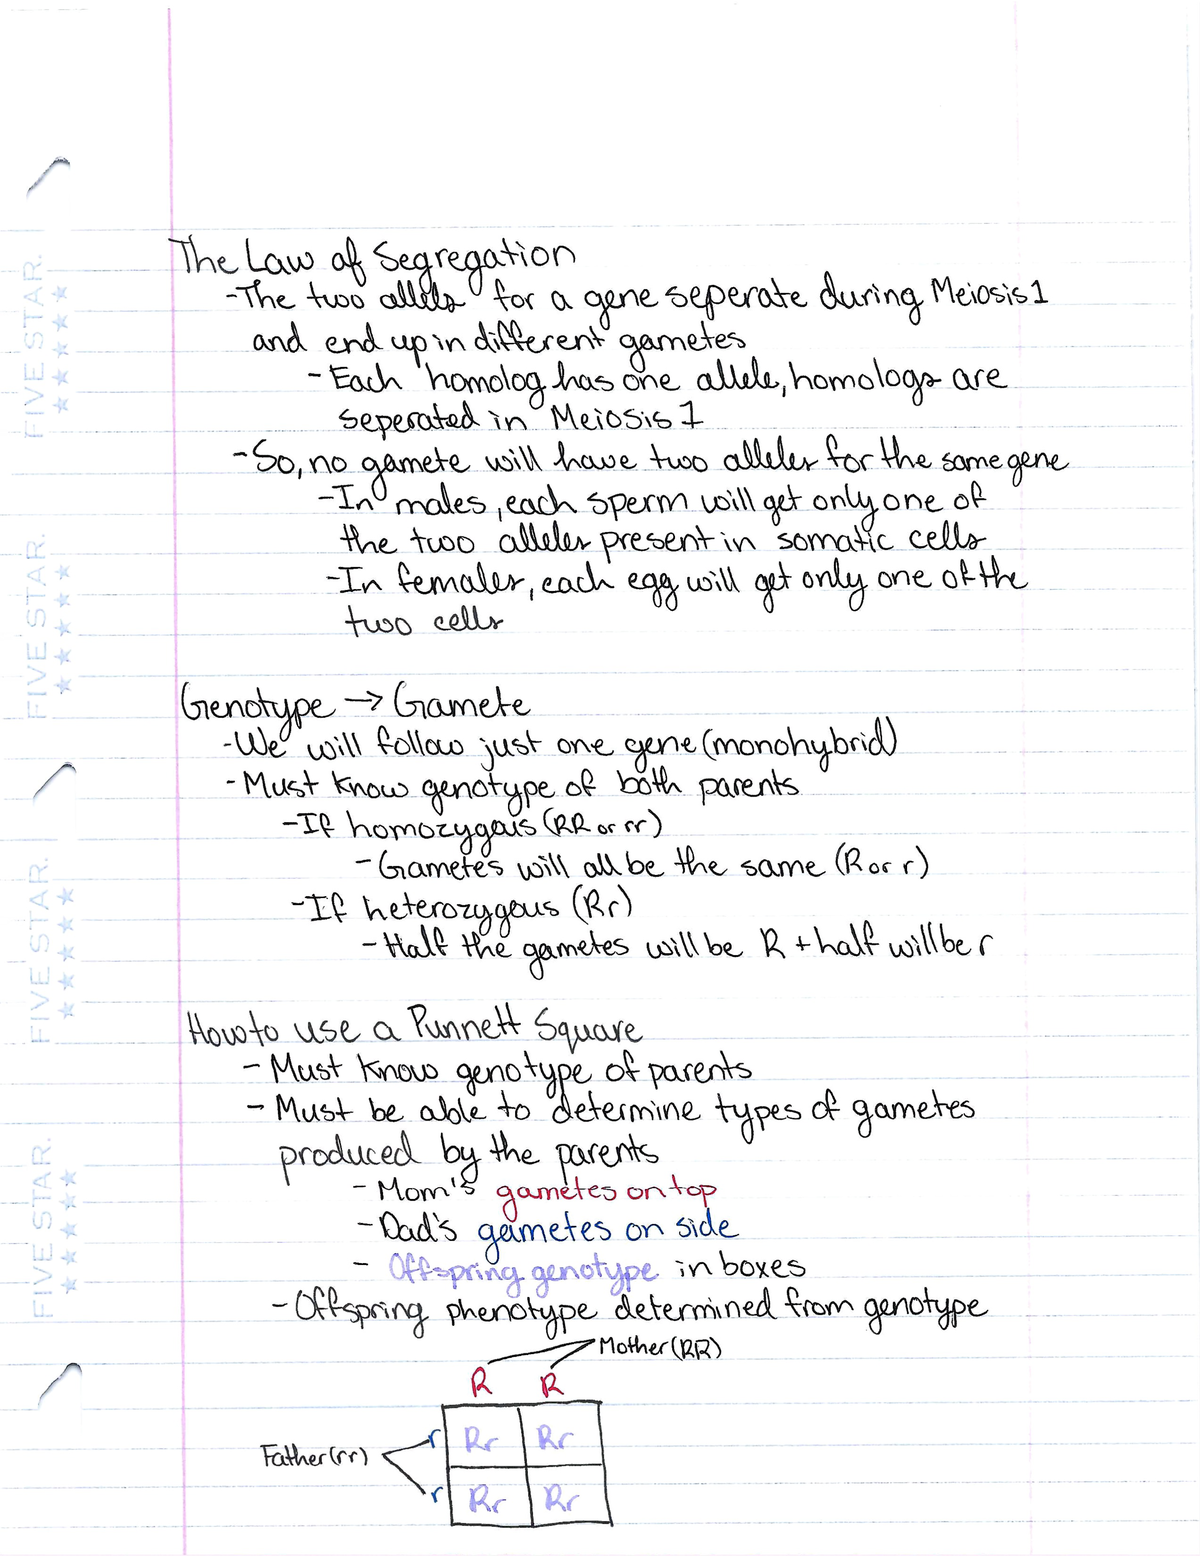 The Law of Segregation
-The two allels for a gene seperate during Meiosis 1
and end up in different gametes
- Each homolog has one allele, homologs are
seperated in Meiosis 1
-So, no gamete will have two alleles for the same gene
-In males, each sperm will get only one of
the two alleles present in somatic cells
-In females, each egg will get only one of the
two cells
Genotype → Gamete
-We will follow just one gene (monohybrid)
- Must know genotype of both parents
-If homozygous (RR or rr)
- Gametes will all be the same (R or r)
-If heterozygous (Rr)
- Half the gametes will be R + half will be r
How to use a Punnett Square
- Must know genotype of parents
- Must be able to determine types of gametes
produced by the parents
- Mom's gametes on top
- Dad's gametes on side
- Offspring genotype in boxes
- Offspring phenotype determined from genotype
Mother (RR)
R R
r Rr Rr
Father (rr)
r Rr Rr
FIVE STAR.
FIVE STAR.
FIVE STAR.
FIVE STAR.